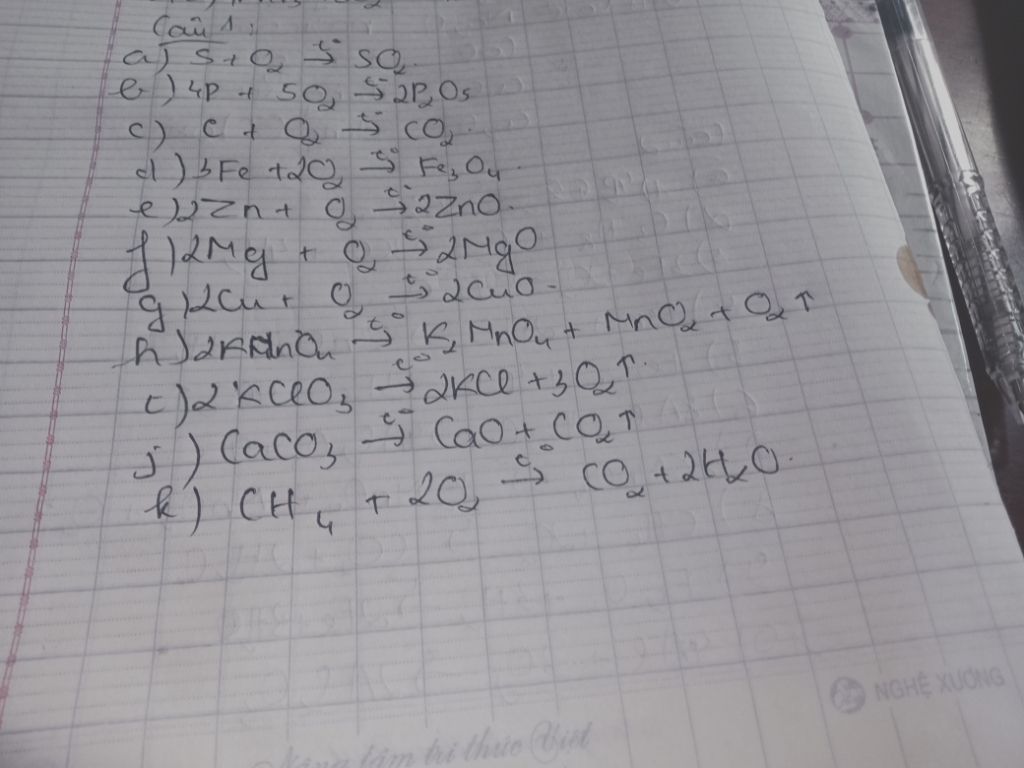 Câu 1:
a) S + O₂ t°→ SO₂.
b) 4P + 5O₂ t°→ 2P₂O₅
c) C + O₂ t°→ CO₂.
d) 3Fe + 2O₂ t°→ Fe₃O₄.
e) 2Zn + O₂ t°→ 2ZnO.
f) 2Mg + O₂ t°→ 2MgO
g) 2Cu + O₂ t°→ 2CuO.
h) 2KMnO₄ t°→ K₂MnO₄ + MnO₂ + O₂↑
i) 2KClO₃ t°→ 2KCl + 3O₂↑.
j) CaCO₃ t°→ CaO + CO₂↑
k) CH₄ + 2O₂ t°→ CO₂ + 2H₂O.
NGHỆ XƯƠNG
Nâng tầm tri thức Việt